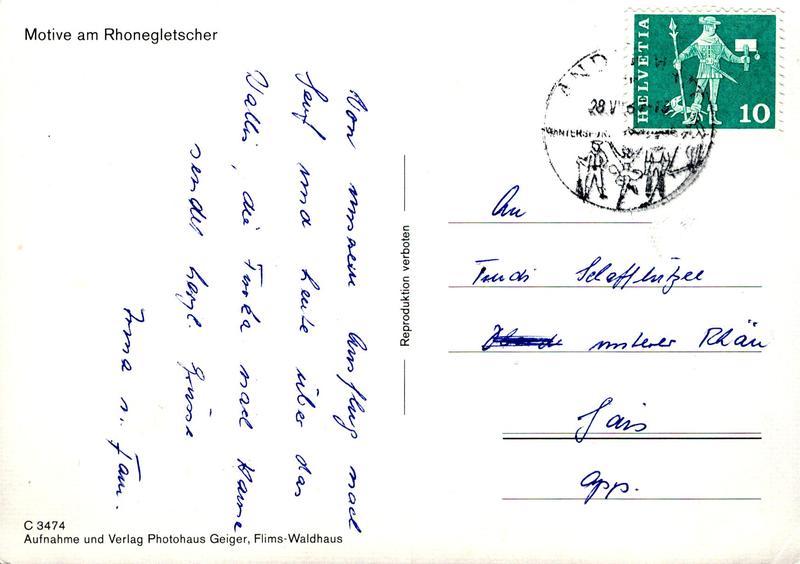 Motive am Rhonegletscher
HELVETIA
10
AND
28.V
WINTERSPORT
Von unserem Ausflug nach
und heute über das
Wallis, die Furka nach Hause
sendet herzl. Grüsse
Irma u. Fam.
Reproduktion verboten
An
Trudi
unterer Rhän
Gais
App.
C 3474
Aufnahme und Verlag Photohaus Geiger, Flims-Waldhaus